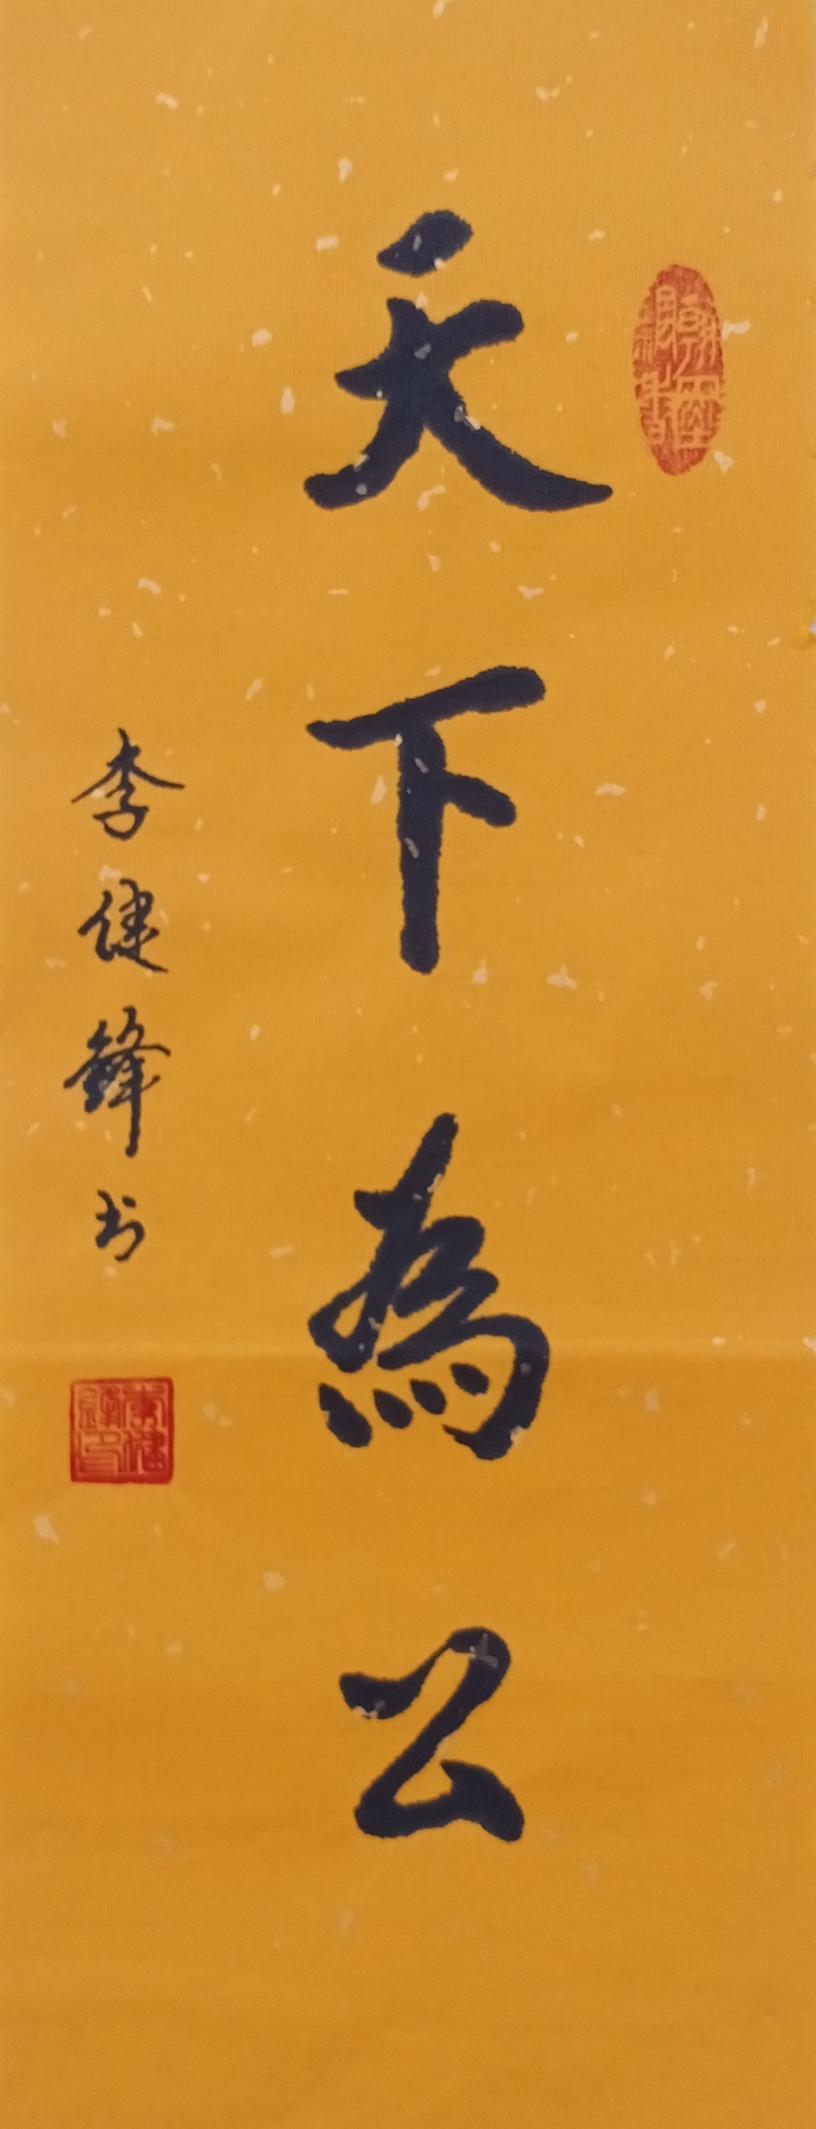 天下為公
李健鋒书